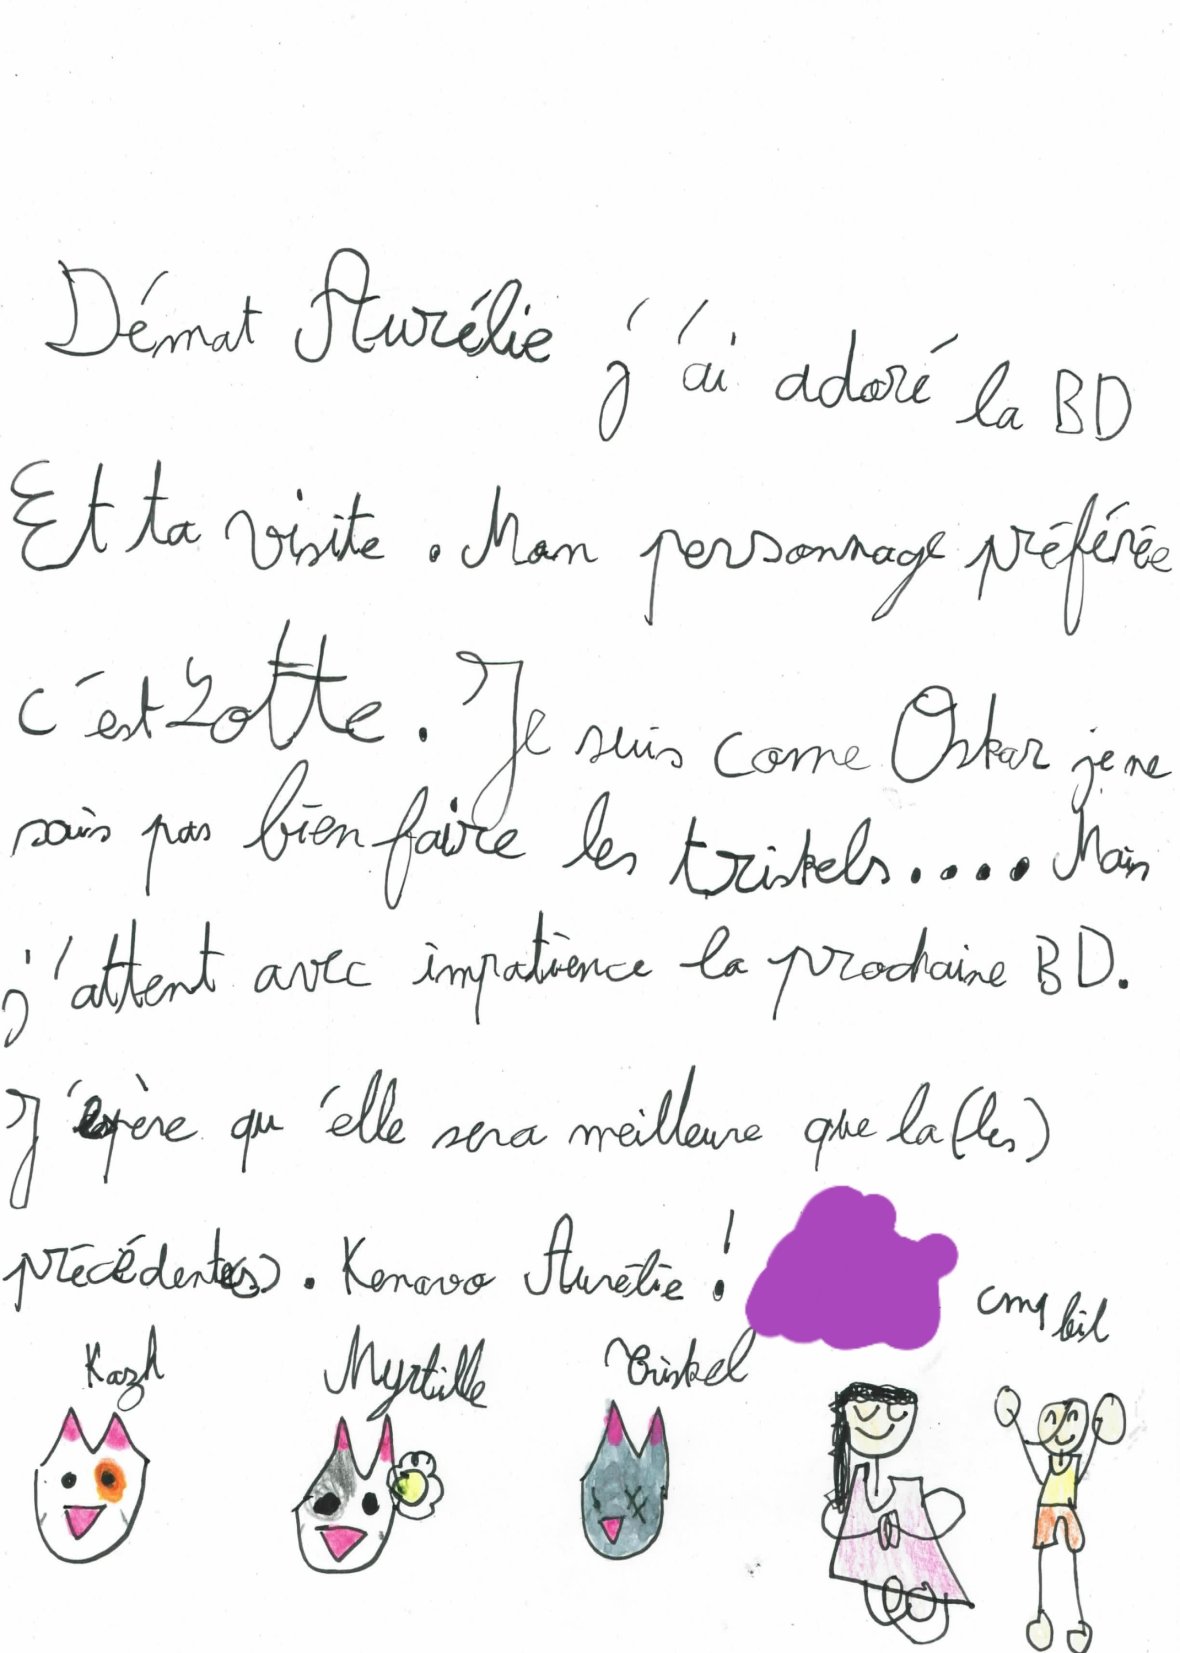 Démat Aurélie j'ai adoré la BD
Et ta visite. Mon personnage préférée
c'est Lotte. Je suis come Oskar je ne
sais pas bien faire les triskels.... Mais
j'attent avec impatience la prochaine BD.
J'espère qu'elle sera meilleure que la (les)
précédente(s). Kenavo Aurélie!
cm1 bil
Kazh Myrtille Triskel